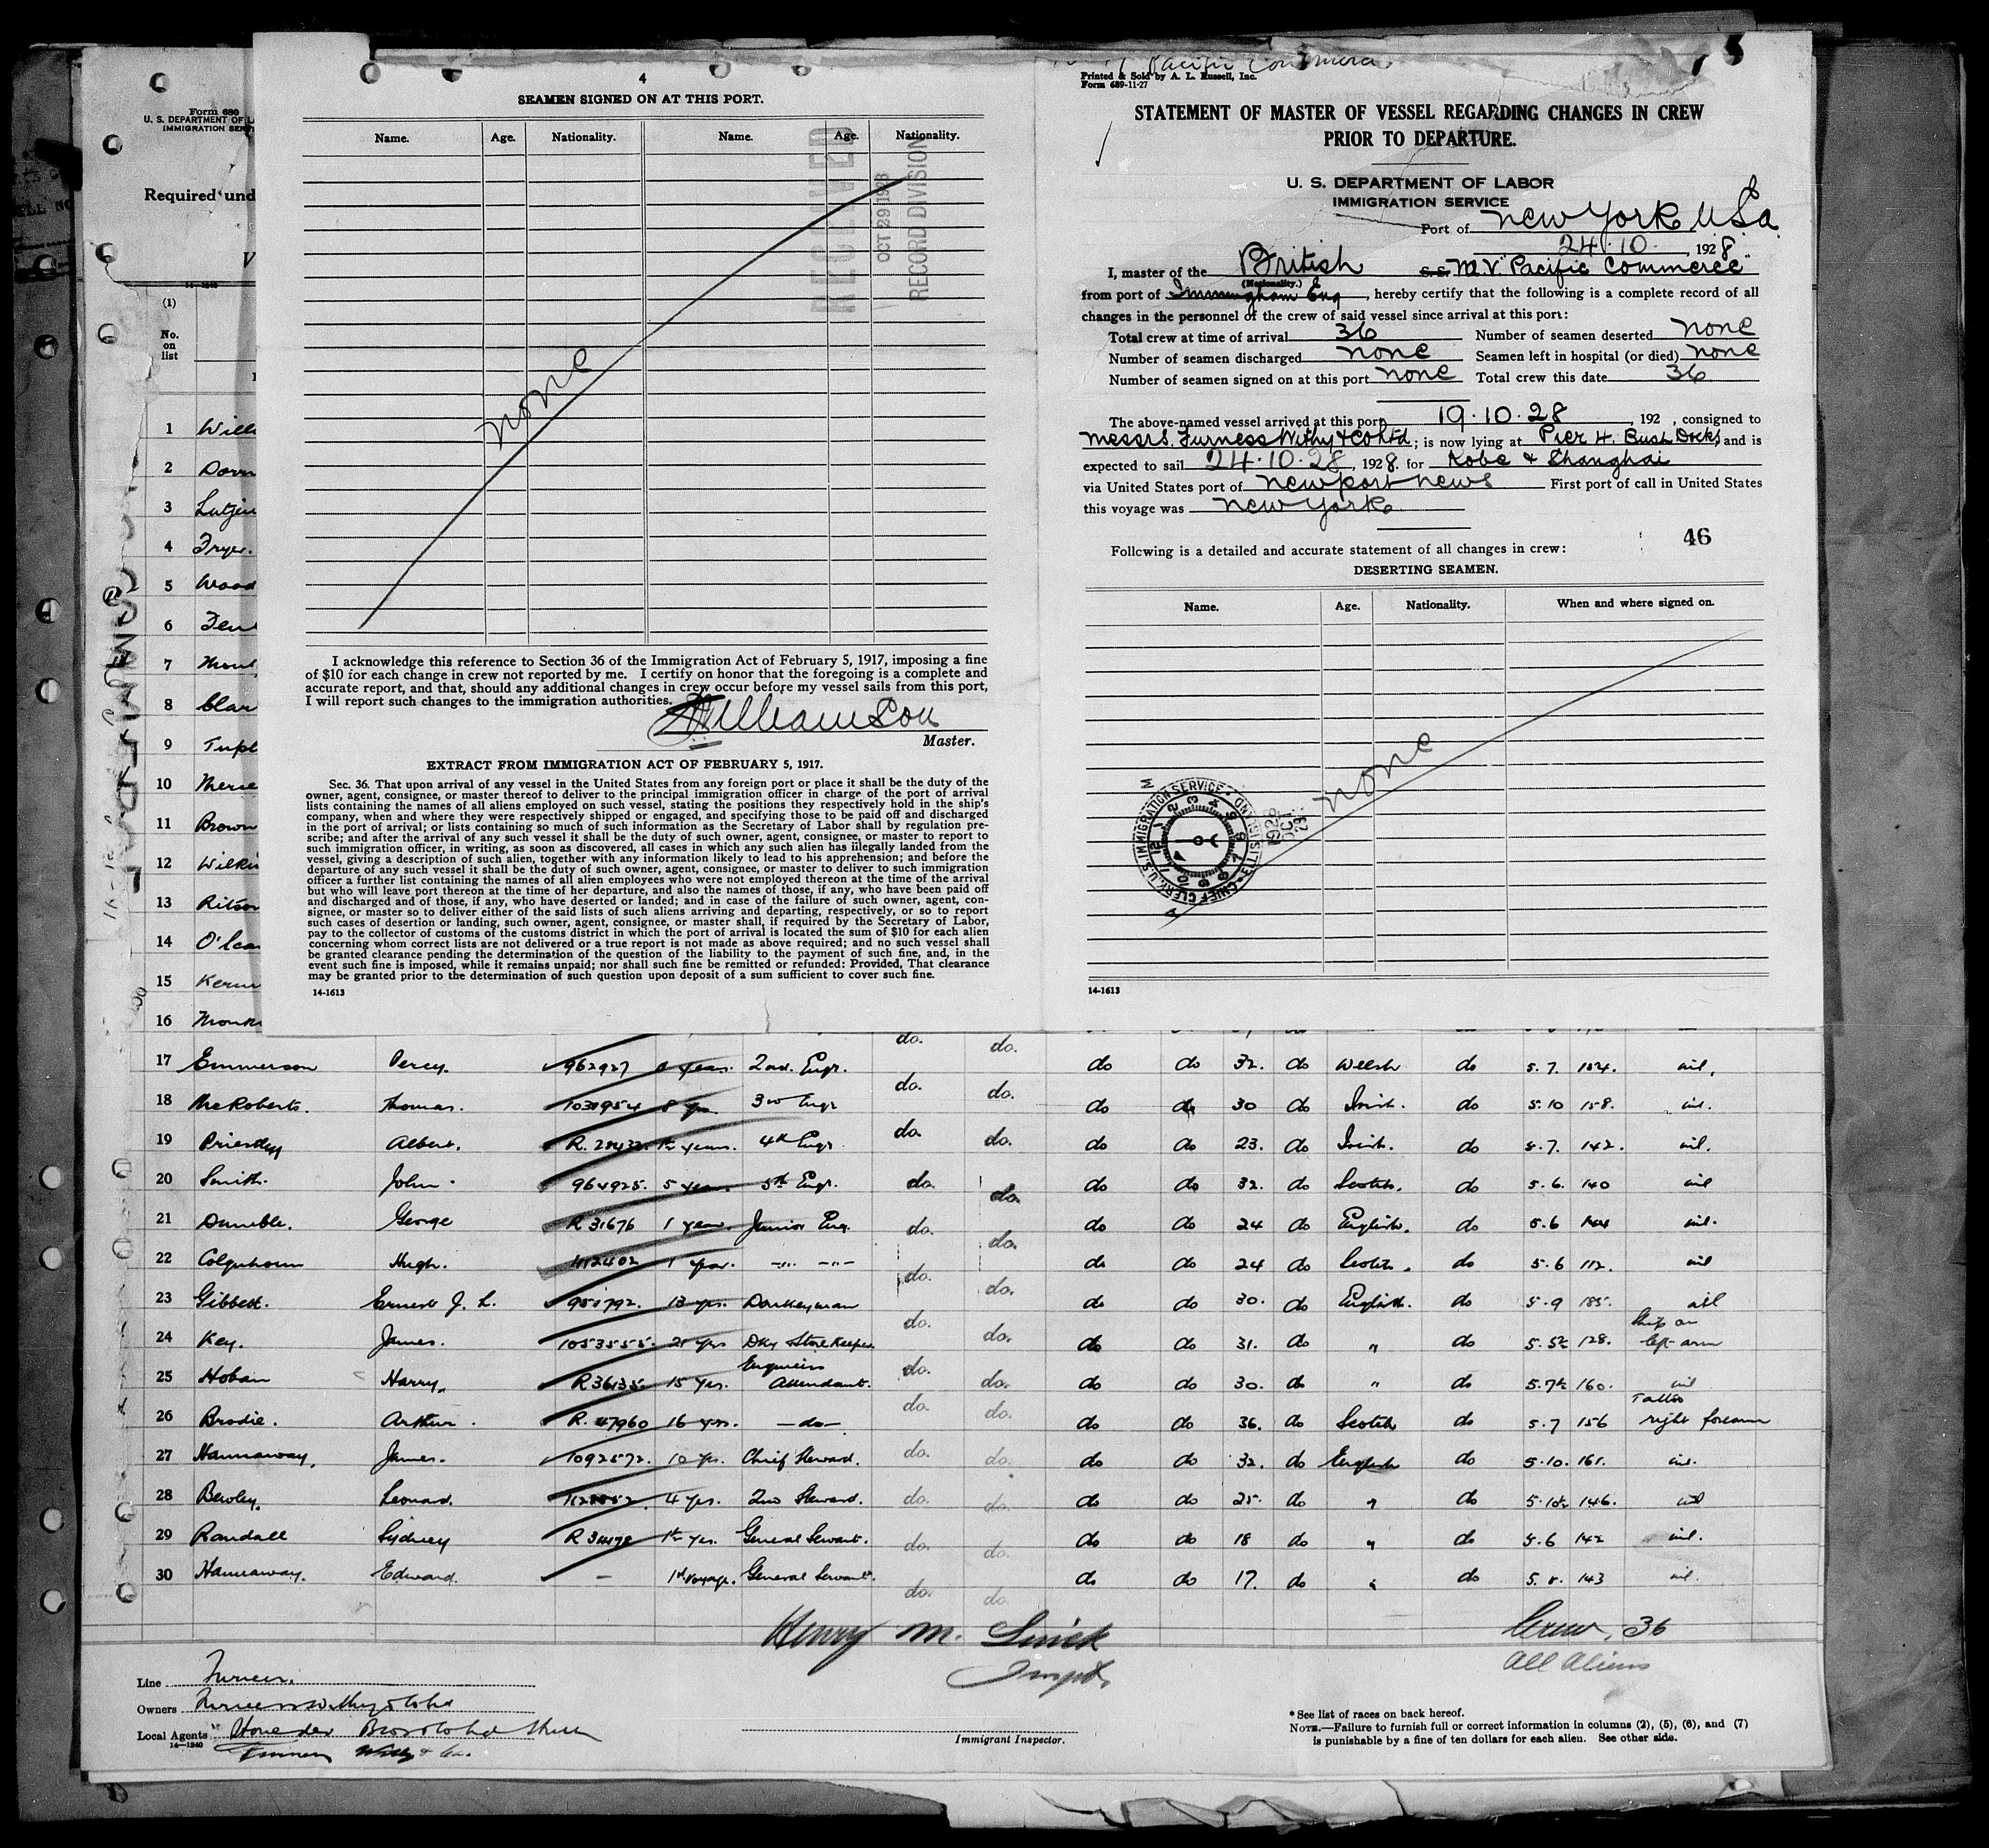 Form 680
U. S. DEPARTMENT OF
IMMIGRATION
Required und
(1)
No.
on
list
1 Will
2 Down
3 Lutjen
4 Fryer.
5 Wood
6
7
8 Clar
9 Tupl
10
11 Brown
12 Wilki
13 Ritson
14 O'Lea
15
16 Monk
4
SEAMEN SIGNED ON AT THIS PORT.
Name. Age. Nationality. Name. Age. Nationality.
RECEIVED
OCT 29 1928
RECORD DIVISION
none
I acknowledge this reference to Section 36 of the Immigration Act of February 5, 1917, imposing a fine
of $10 for each change in crew not reported by me. I certify on honor that the foregoing is a complete and
accurate report, and that, should any additional changes in crew occur before my vessel sails from this port,
I will report such changes to the immigration authorities.
Williamson
Master.
EXTRACT FROM IMMIGRATION ACT OF FEBRUARY 5, 1917.
Sec. 36. That upon arrival of any vessel in the United States from any foreign port or place it shall be the duty of the
owner, agent, consignee, or master thereof to deliver to the principal immigration officer in charge of the port of arrival
lists containing the names of all aliens employed on such vessel, stating the positions they respectively hold in the ship's
company, when and where they were respectively shipped or engaged, and specifying those to be paid off and discharged
in the port of arrival; or lists containing so much of such information as the Secretary of Labor shall by regulation pre-
scribe; and after the arrival of any such vessel it shall be the duty of such owner, agent, consignee, or master to report to
such immigration officer, in writing, as soon as discovered, all cases in which any such alien has illegally landed from the
vessel, giving a description of such alien, together with any information likely to lead to his apprehension; and before the
departure of any such vessel it shall be the duty of such owner, agent, consignee, or master to deliver to such immigration
officer a further list containing the names of all alien employees who were not employed thereon at the time of the arrival
but who will leave port thereon at the time of her departure, and also the names of those, if any, who have been paid off
and discharged and of those, if any, who have deserted or landed; and in case of the failure of such owner, agent, con-
signee, or master so to deliver either of the said lists of such aliens arriving and departing, respectively, or so to report
such cases of desertion or landing, such owner, agent, consignee, or master shall, if required by the Secretary of Labor,
pay to the collector of customs of the customs district in which the port of arrival is located the sum of $10 for each alien
concerning whom correct lists are not delivered or a true report is not made as above required; and no such vessel shall
be granted clearance pending the determination of the question of the liability to the payment of such fine, and, in the
event such fine is imposed, while it remains unpaid; nor shall such fine be remitted or refunded: Provided, That clearance
may be granted prior to the determination of such question upon deposit of a sum sufficient to cover such fine.
14-1613
Pacific Commerce
Printed & Sold by A. L. Russell, Inc.
Form 689-11-27
STATEMENT OF MASTER OF VESSEL REGARDING CHANGES IN CREW
PRIOR TO DEPARTURE.
U. S. DEPARTMENT OF LABOR
IMMIGRATION SERVICE
Port of New York U S a
24.10. , 1928
I, master of the British S.S. M.V "Pacific Commerce"
(Nationality.)
from port of Immingham Eng , hereby certify that the following is a complete record of all
changes in the personnel of the crew of said vessel since arrival at this port:
Total crew at time of arrival 36 Number of seamen deserted none
Number of seamen discharged none Seamen left in hospital (or died) none
Number of seamen signed on at this port none Total crew this date 36
The above-named vessel arrived at this port 19.10.28 , 192 , consigned to
Messrs. Furness Withy & Co Ltd ; is now lying at Pier 4. Bush Docks, and is
expected to sail 24.10.28 , 1928. for Kobe & Shanghai
via United States port of Newport News First port of call in United States
this voyage was New York
46
Following is a detailed and accurate statement of all changes in crew:
DESERTING SEAMEN.
Name. Age. Nationality. When and where signed on.
none
CHIEF CLERK, U.S. IMMIGRATION SERVICE
1928 OCT 29
14-1613
do. do.
17 Emmerson Percy. 962927 years. 2nd. Engr. do. do. do do 32. do Welsh do 5.7. 154. nil.
18 McRoberts. Thomas. 1031954 8 yrs 3rd Engr do. do. do do 30 do Irish. do 5.10 158. nil.
19 Priestley Albert. R. 28432 years. 4th Engr do. do. do do 23. do Irish. do 5.7. 142. nil.
20 Smith. John. 964925. 5 years. 5th Engr. do. do. do do 32. do Scotch. do 5.6. 140 nil
21 Dumble. George R 31676 1 year. Junior Eng. do. do. do do 24 do English. do 5.6 144 nil.
22 Colquhoun Hugh. 1112402 1 year. -"- -"- do. do. do do 24 do Scotch. do 5.6 112. nil
23 Gibbett. Ernest J. L. 951792. 13 yrs. Donkeyman do. do. do do 30. do English. do 5.9 185. nil
24 Key. James. 1053555. 21 yrs Dky Storekeeper. do. do. do do 31. do " do 5.5½ 128. Ship on left arm
25 Hoban Harry. R36135. 15 yrs. Engineers Attendant. do. do. do do 30. do " do 5.7½ 160. nil
26 Brodie. Arthur. R. 47960 16 yrs. -do- do. do. do do 36. do Scotch do 5.7 156 Tattoo right forearm
27 Hannaway. James. 1092572. 10 yrs. Chief Steward. do. do. do do 32. do English do 5.10. 161. nil.
28 Bewley. Leonard. 4 yrs. 2nd Steward. do. do. do do 25. do " do 5.10½ 146. nil
29 Randall Sydney R 34178 1½ yrs. General Servant. do. do. do do 18 do " do 5.6 142 nil.
30 Hannaway. Edward. - 1st Voyage. General Servant. do. do. do do 17. do " do 5.8. 143 nil.
Henry M. Sinick
Inspt.
Crew, 36
All Aliens
Line Furness.
Owners Furness Withy & Co Ltd
Local Agents Houlder Bros & Co Ltd
14-1240
Furness Withy & Co.
Immigrant Inspector.
* See list of races on back hereof.
NOTE.—Failure to furnish full or correct information in columns (2), (5), (6), and (7)
is punishable by a fine of ten dollars for each alien. See other side.